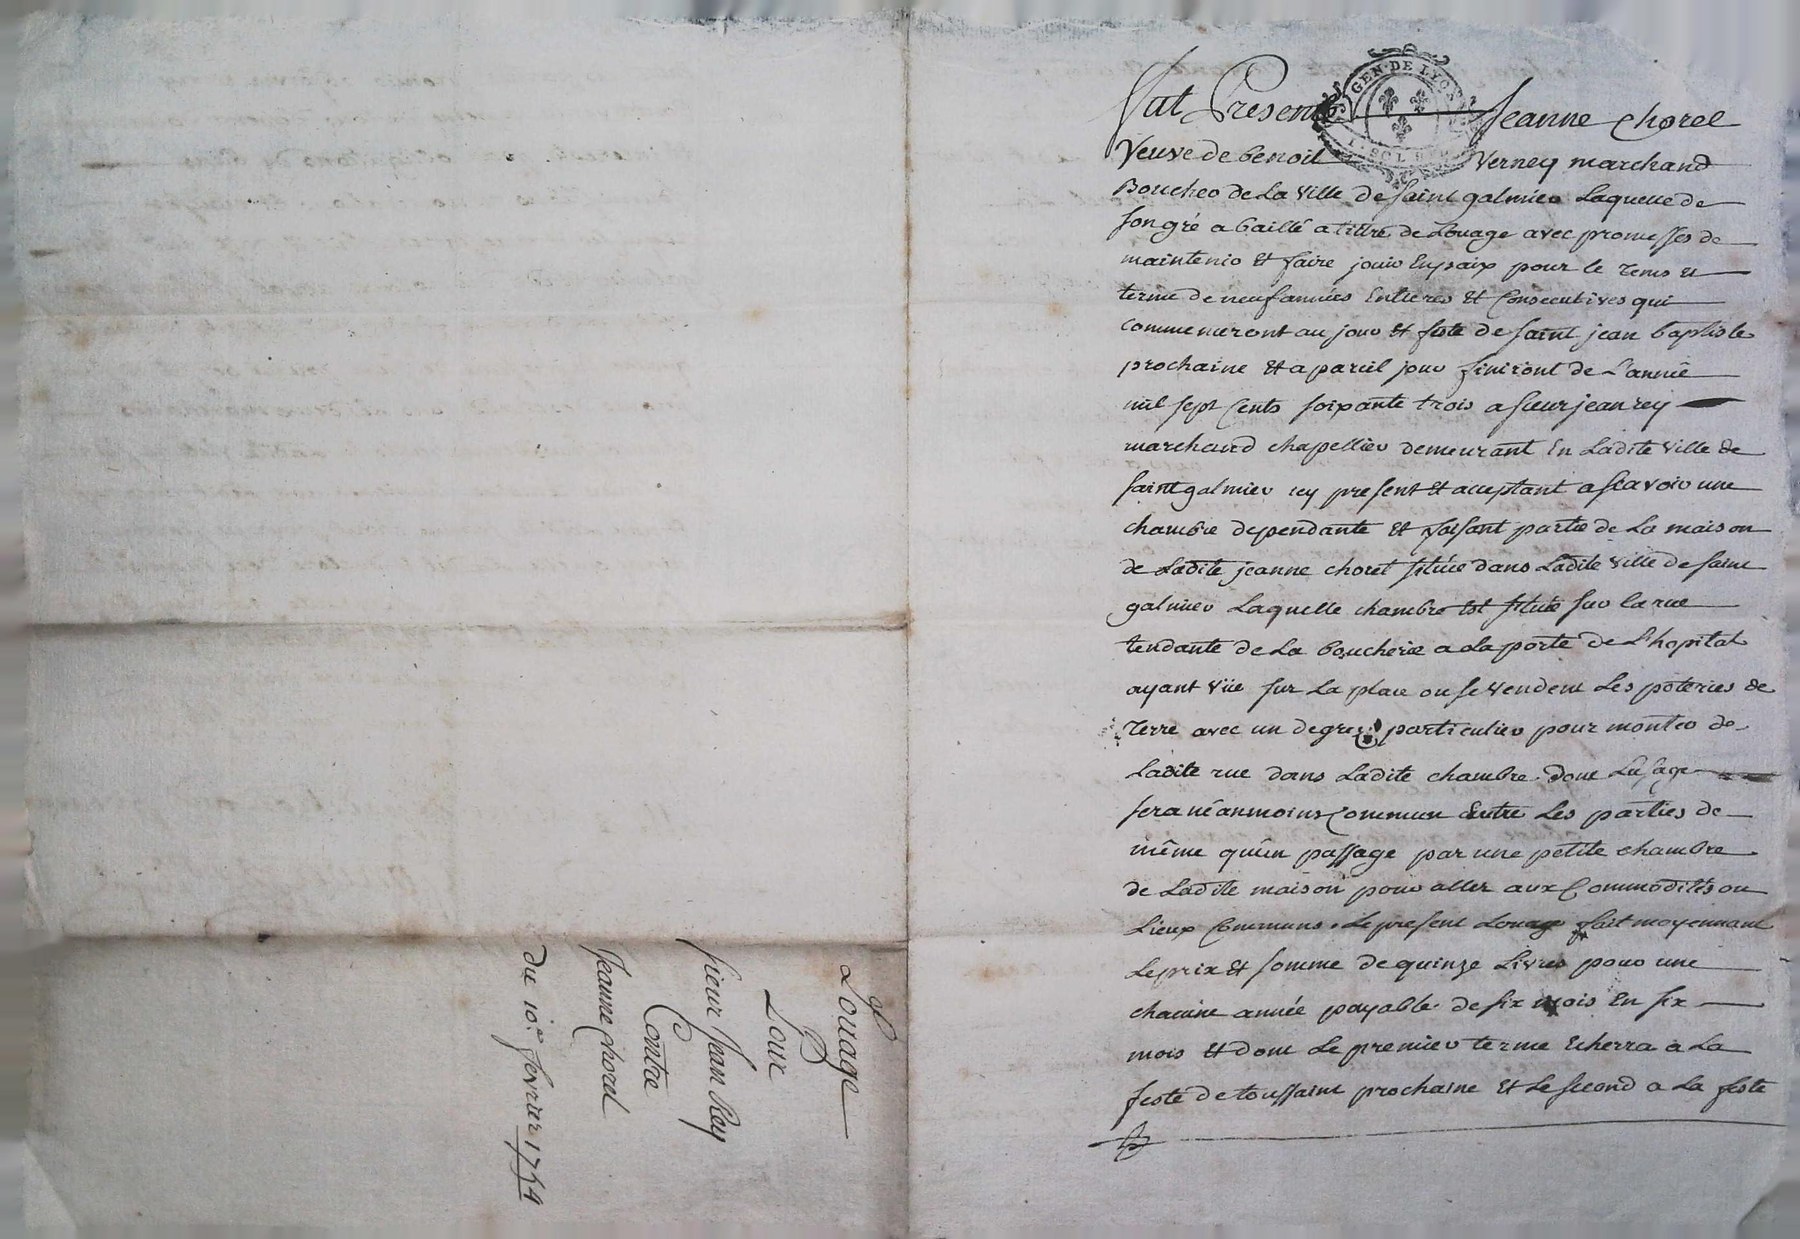 GEN · DE LYON
Fut Presente Jeanne chorel
Veuve de benoit Verney marchand
Boucher de La Ville de saint galmier Laquelle de
son gré a baillé a tittre de Louage avec promesses de
maintenir Et faire jouir En paix pour le tems et
terme de neuf années Entieres Et Consecutives qui
commenceront au jour Et feste de saint jean baptiste
prochaine Et a pareil jour finiront de L'année
mil sept Cents soixante trois a sieur jean rey
marchand chapellier demeurant En Ladite Ville de
saint galmier icy present Et acceptant a scavoir une
chambre dependante Et faisant partie de La maison
de Ladite jeanne chorel située dans Ladite Ville de saint
galmier Laquelle chambre Est située sur la rue
tendante de La boucherie a La porte de L'hopital
ayant vüe sur La place ou se vendent Les poteries de
terre avec un degrez particulier pour monter de
Ladite rue dans Ladite chambre dont Lusage
sera néanmoins Commun Entre Les parties de
même qu'un passage par une petite chambre
de Ladite maison pour aller aux Commodités ou
Lieux Communs. Le present Louage fait moyennant
Le prix Et somme de quinze Livres pour une
chacune année payable de six mois En six
mois Et dont Le premier terme Echerra a La
feste de toussaint prochaine Et Le second a La feste
Louage
Pour
sieur Jean Rey
Contre
Jeanne chorel
du 10.e fevrier 1754